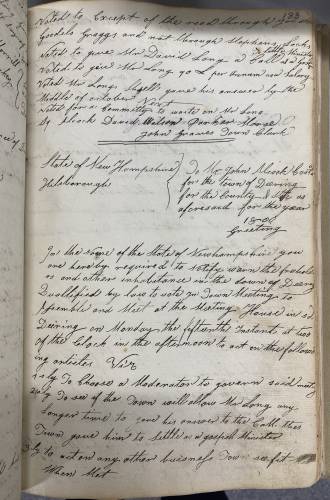 Voted to Except of the road through
Goodels Graggs and not through Stephens Lock
Voted to give Mr David Long a Call as a
Voted to give Mr Long 70 £ per annum as salary
Voted Mr Long shall give his answer by the
Middle of october Next
Voted for a Committee to waite on Mr Long
Alcock David Wilson Parker Morse
John Graves Town Clerk
State of New Hampshire
Hilsborough
To Mr John Alcock Cost
for the Town of Deering
for the County & State as
aforesaid for the year
1800
Greeting
In the name of the State of Newhampshire you
are hereby required to notify warn the freehold
ers and other inhabitance in the town of Deering
Quallified by law to vote in Town Meeting to
Assemble and Meet at the Meeting House in sd
Deering on Monday the fifteenth Instant at two
of the Clock in the afternoon to act on the follow
ing articles Viz
1ly To Choose a Moderator to govern said meeting
2ly To see if the Town will allow Mr Long any
Longer time to give his answer to the Call this
Town gave him to settle as a gospel Minister
3ly to act on any other buisness Town see fit
When Met